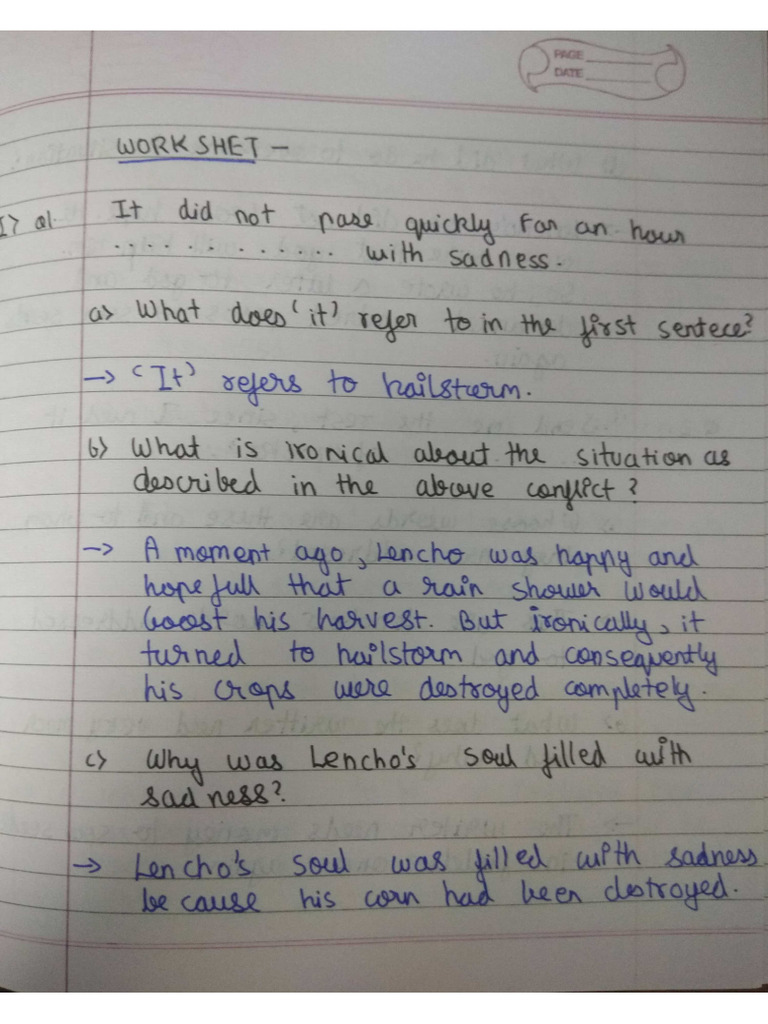 PAGE
DATE
WORKSHET -
1) a). It did not pase quickly for an hour
. . . . . . . . . . . . with sadness.
a) What does 'it' refer to in the first sentece?
→ 'It' refers to hailsturm.
b) What is ironical about the situation as
described in the above conflict?
→ A moment ago, Lencho was happy and
hopefull that a rain shower would
boost his harvest. But ironically, it
turned to hailstorm and consequently
his crops were destroyed completely.
c) Why was Lencho's soul filled with
sadness?
→ Lencho's soul was filled with sadness
because his corn had been destroyed.